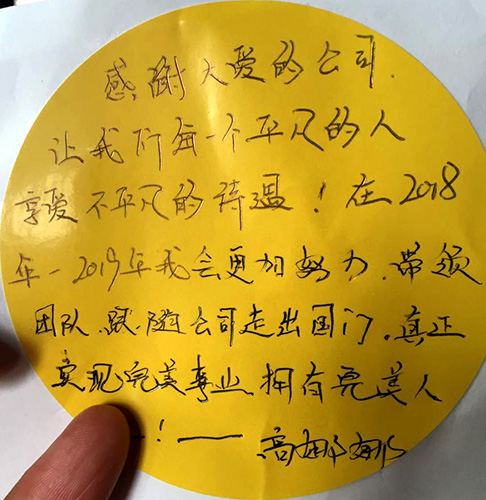 感谢大爱的公司.
让我们每一个平凡的人
享爱不平凡的待遇！在2018
年一2019年我会更加努力.带领
团队.跟.随公司走出国门.真正
实现完美事业拥有完美人
！——高娜娜